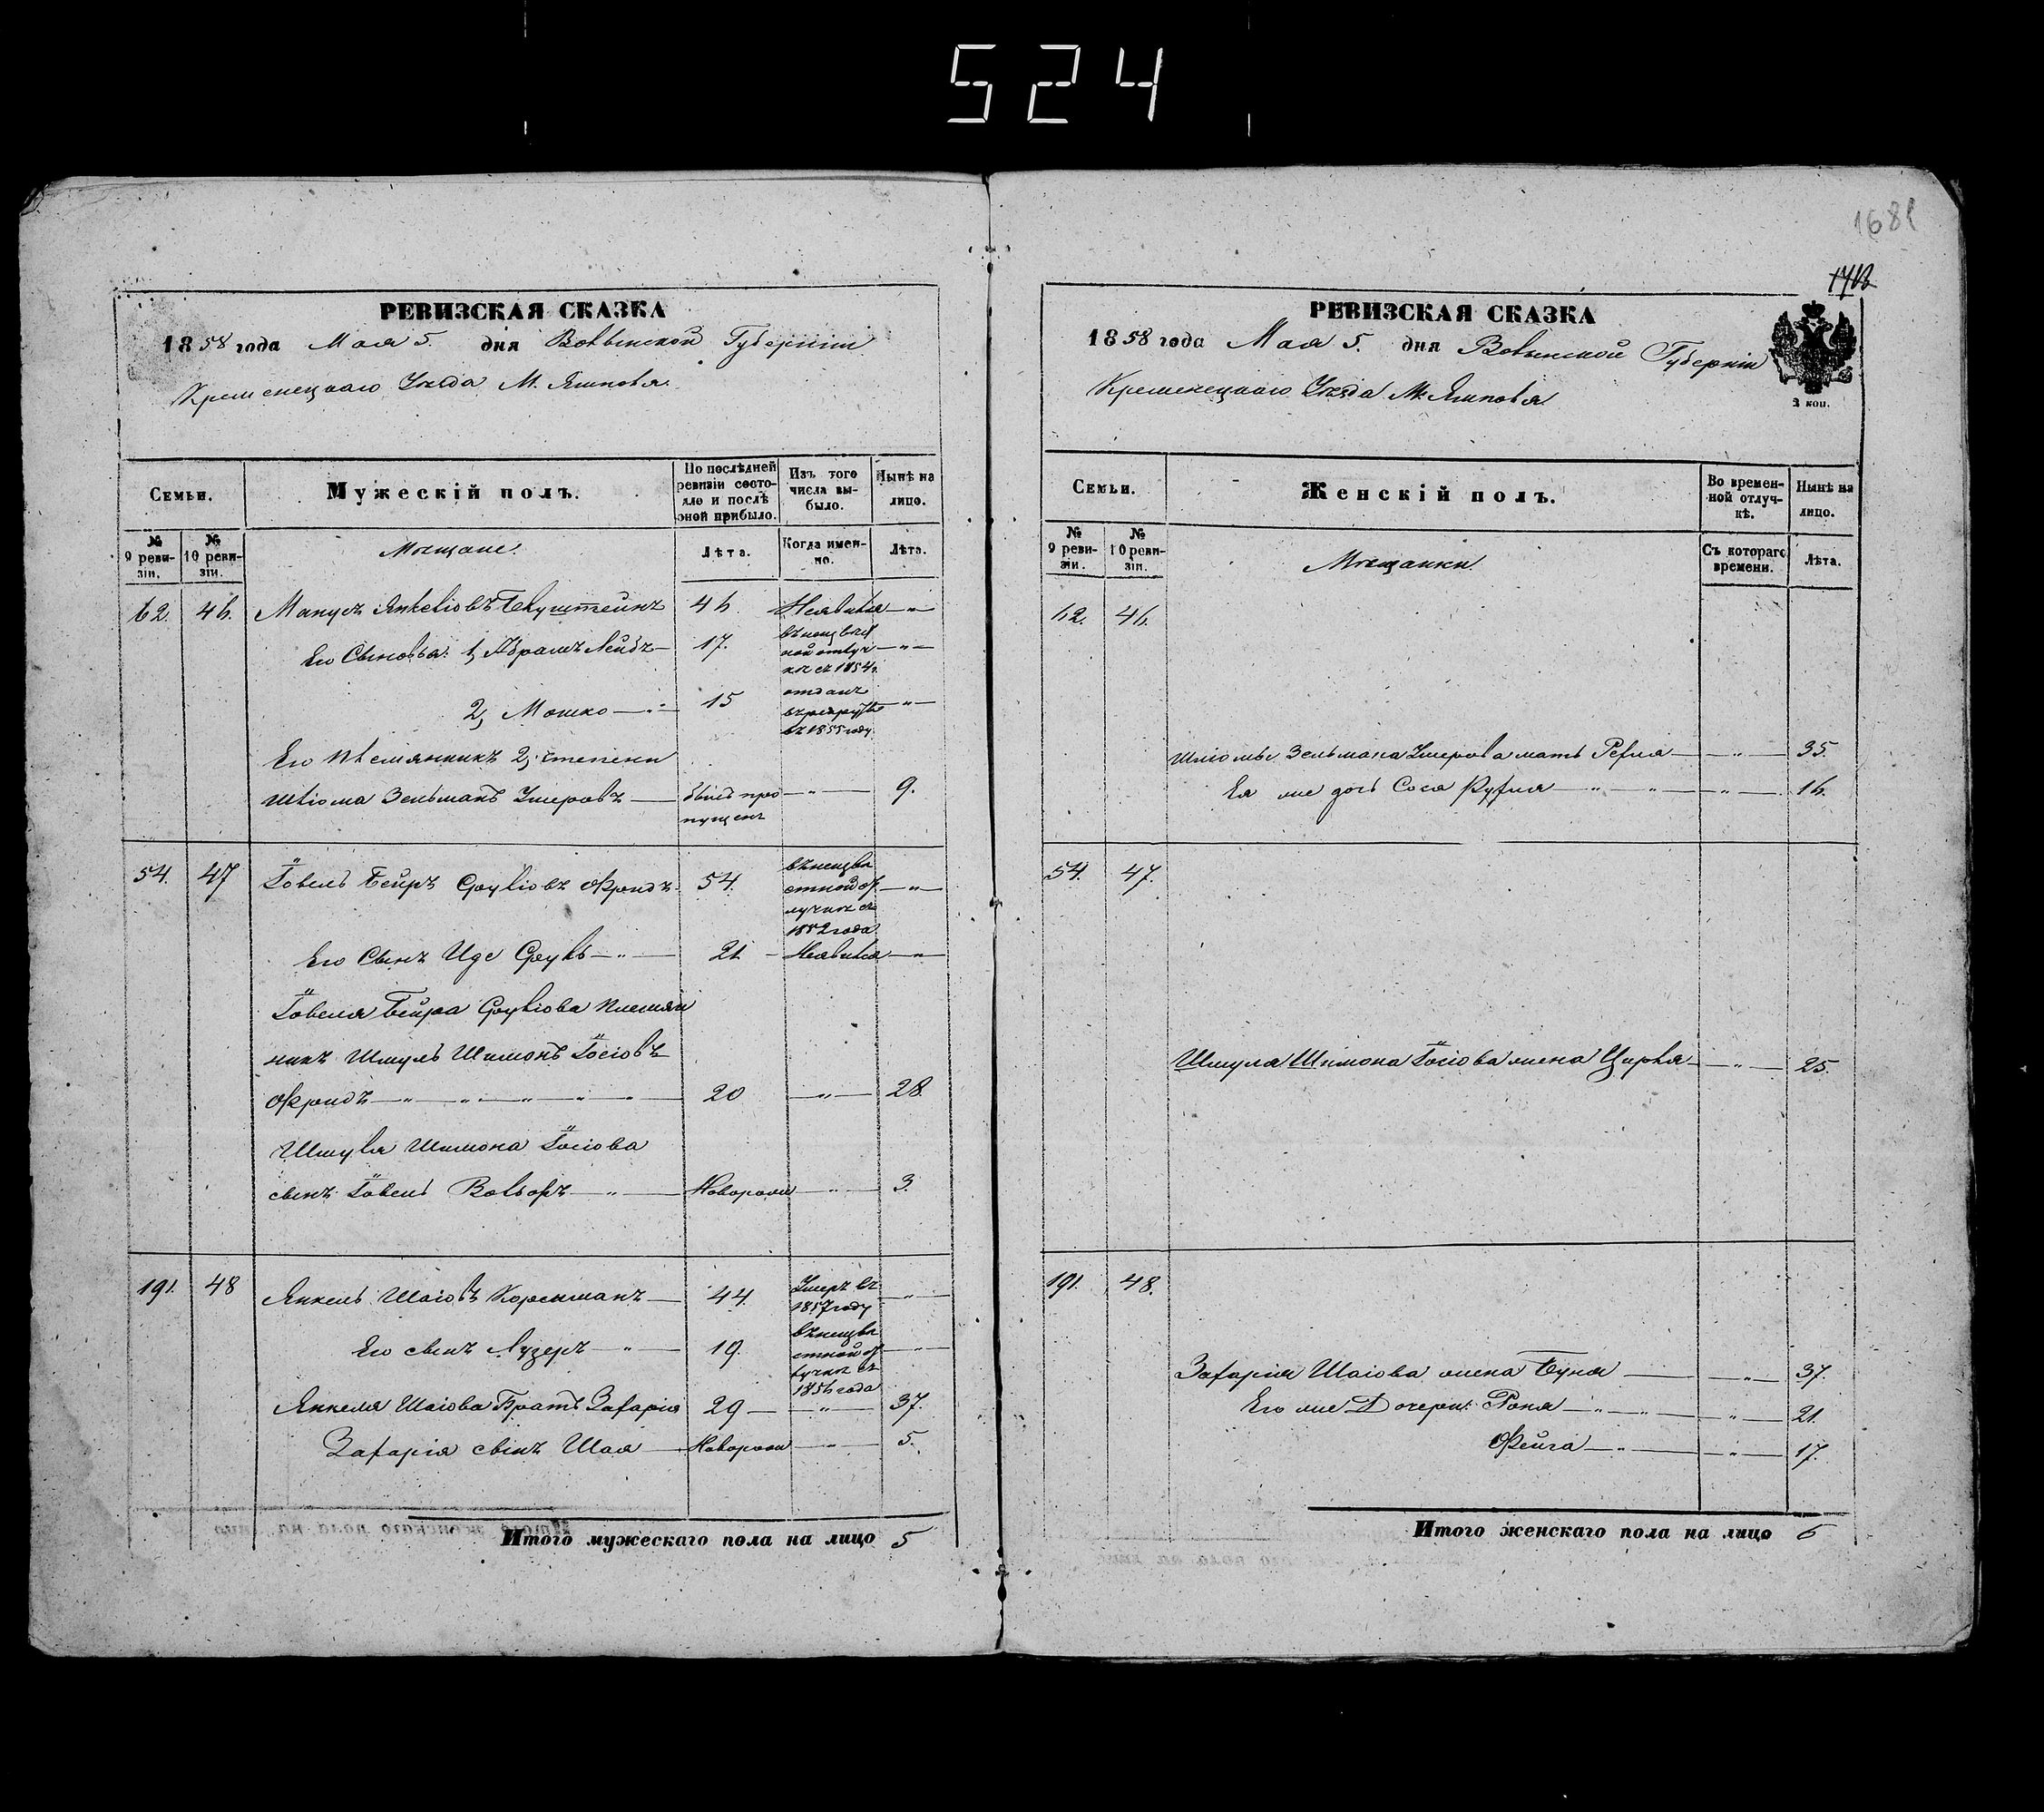 524
1681
РЕВИЗСКАЯ СКАЗКА
1858 года Мая 5. дня Волынской Губерніи
Кременецкаго Уѣзда М. Ямполя.
Семьи.
Мужескій полъ.
По послѣдней ревизіи состояло и послѣ оной прибыло.
Изъ того числа выбыло.
Нынѣ на лицо.
№ 9 ревизіи.
№ 10 ревизіи.
Мѣщане.
Лѣта.
Когда именно.
Лѣта.
62. 46. Манусъ Янкеліовъ 46 Неявился — „ —
Его Сыновья: 1, Абрамъ Лейбъ — 17. въ неизвѣстной отлучкѣ съ 1854 г. — „ —
2, Мошко — „ — 15 отданъ въ рекруты въ 1855 году — „ —
Его племянникъ 2, степени
Шліома Зельманъ Умеровъ — былъ пропущенъ — „ — 9.
54. 47 Іовель Беиръ Сруліовъ Фридъ 54. въ неизвѣстной отлучкѣ съ 1852 года — „ —
Его Сынъ Иде Сруль — „ — 21 - Неявился — „ —
Іовеля Беира Сруліова племян
никъ Шмуль Шимонъ Іосіовъ
Фридъ — „ — „ — „ — „ — 20 — „ — 28.
Шмуля Шимона Іосіова
сынъ Іовель Вольфъ — „ — Новорожд — „ — 3.
191. 48 Янкель Шаіовъ Корсиманъ — 44. Умеръ въ 1857 году — „ —
Его сынъ Лузеръ — „ — 19. въ неизвѣстной отлучкѣ съ 1856 года — „ —
Янкеля Шаіова Братъ Захарія 29 — „ — 37.
Захарія сынъ Шая — Новорожд — „ — 5.
Итого мужескаго пола на лицо 5
РЕВИЗСКАЯ СКАЗКА
1858 года Мая 5. дня Волынской Губерніи
Кременецкаго Уѣзда М. Ямполя
3 коп.
Семьи.
Женскій полъ.
Во временной отлучкѣ.
Нынѣ на лицо.
№ 9 ревизіи.
№ 10 ревизіи.
Мѣщанки
Съ котораго времени.
Лѣта.
62. 46.
Шліомы Зельмана Умерова мать Рехля — „ — 35.
Ея же дочь Сося Рухля — „ — „ — „ — 16.
54. 47.
Шмуля Шимона Іосіова жена Цирля — „ — 25.
191. 48.
Захарія Шаіова жена Буня — „ — 37.
Его же Дочери: Роня — „ — „ — „ — 21.
Фейга — „ — „ — 17.
Итого женскаго пола на лицо 6